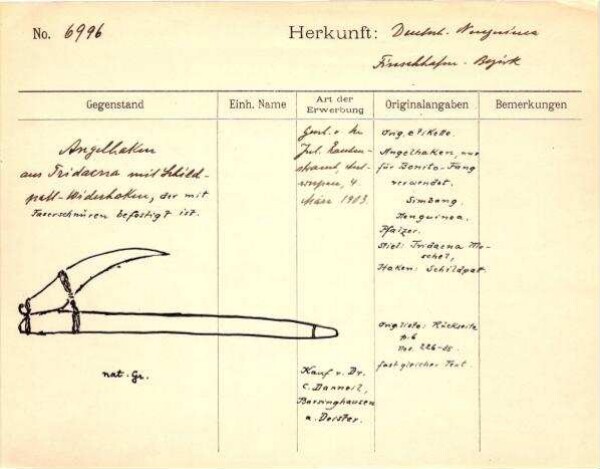 No. 6996
Herkunft: Deutsch. Neuguinea
Finschhafen - Bezirk
Gegenstand
Einh. Name
Art der Erwerbung
Originalangaben
Bemerkungen
Angelhaken
aus Tridacna mit Schild-
patt-Widerhaken, der mit
Faserschnüren befestigt ist.
nat. Gr.
Jul.
4
März 1903.
Kauf v. Dr.
C. Danneil,
Barsinghausen
a. Deister.
Orig. etikette.
Angelhaken, nur
für Bonito-Fang
verwendet.
Simbang.
Neuguinea.
Pfalzer.
Stiel: Tridacna Mu-
schel,
Haken: Schildpat.
Orig. liste: Rückseite
p. 6
No. 226
fast gleicher Text.